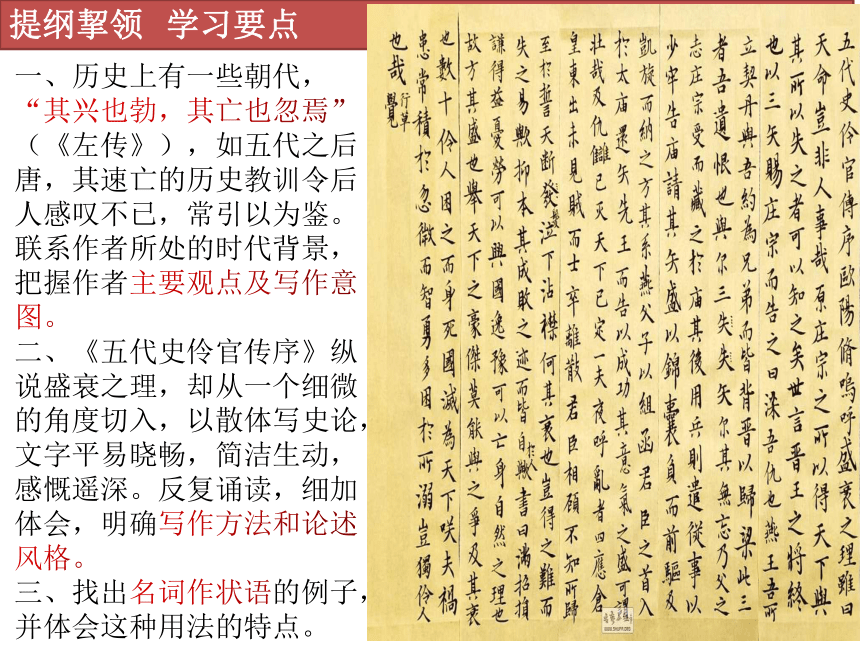 提纲挈领 学习要点
一、历史上有一些朝代，
“其兴也勃，其亡也忽焉”
（《左传》），如五代之后
唐，其速亡的历史教训令后
人感叹不已，常引以为鉴。
联系作者所处的时代背景，
把握作者主要观点及写作意
图。
二、《五代史伶官传序》纵
说盛衰之理，却从一个细微
的角度切入，以散体写史论，
文字平易晓畅，简洁生动，
感慨遥深。反复诵读，细加
体会，明确写作方法和论述
风格。
三、找出名词作状语的例子，
并体会这种用法的特点。
五代史伶官傳序歐陽脩嗚呼盛衰之理雖曰
天命豈非人事哉原庄宗之所以得天下與
其所以失之者可以知之矣世言晋王之將終
也以三矢賜庄宗而告之曰梁吾仇也燕王吾所
立契丹與吾約為兄弟而皆背晋以歸梁此三
者吾遺恨也與尔三失失矢尔其無忘乃父之
志庄宗受而藏之於庙其後用兵則遣從事以
少牢告庙請其矢盛以錦囊負而前驅及
凱旋而納之方其系燕父子以組函君臣之首入
於太庙還矢先王而告以成功其意氣之盛可謂
壮哉及仇讎已灭天下已定一夫夜呼亂者四應倉
皇東出未見賊而士卒離散君臣相顧不知所歸
至於誓天斷發泣下沾襟何其衰也豈得之難而
失之易歟抑本其成敗之迹而皆自於人歟書曰滿招損
謙得益憂勞可以興國逸豫可以亡身自然之理也
故方其盛也舉天下之豪傑莫能與之爭及其衰
也數十伶人困之而身死國滅為天下咲夫禍
患常積於忽微而智勇多困於所溺豈獨伶人
也哉
行草